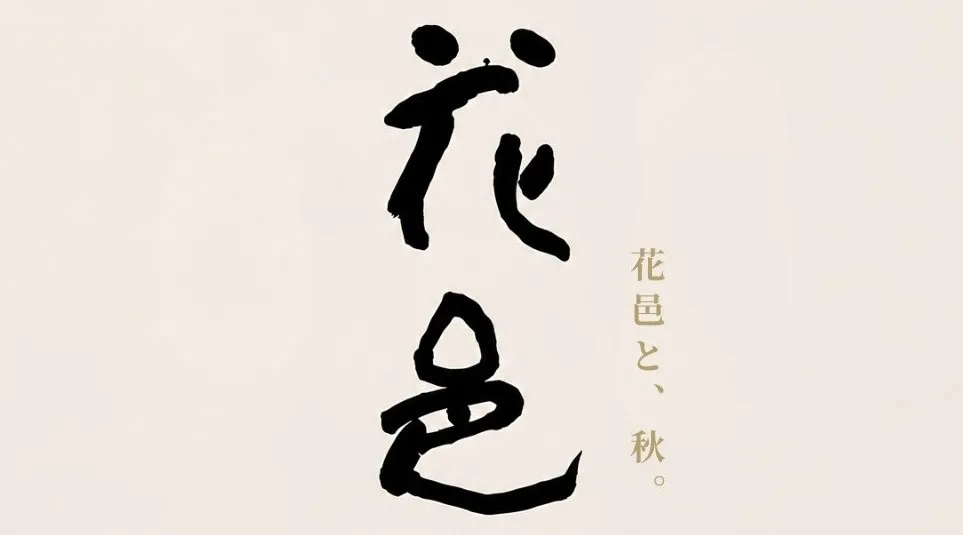 花邑
花邑と、秋。